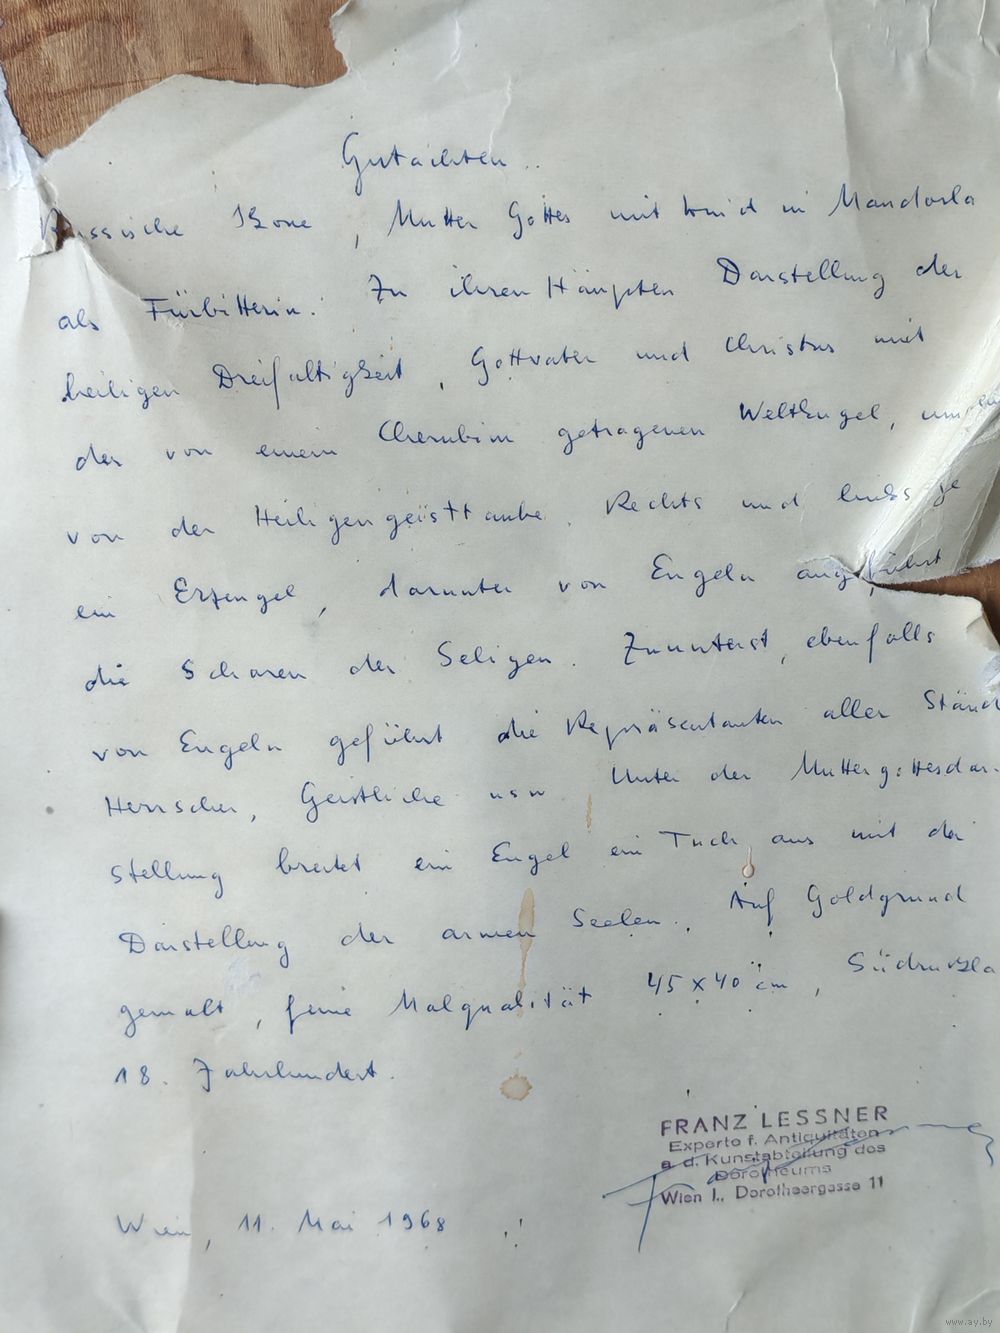 Gutachten.
Russische Ikone, Mutter Gottes mit Kind in Mandorla
als Fürbitterin. Zu ihren Häupten Darstellung der
heiligen Dreifaltigkeit, Gottvater und Christus mit
der von einem Cherubim getragenen Weltkugel,
von der Heiligengeisttaube. Rechts und links je
ein Erzengel, darunter von Engeln angeführt
die Scharen der Seligen. Zuunterst, ebenfalls
von Engeln geführt die Repräsentanten aller Stände
Herrscher, Geistliche usw Unter der Muttergottesdar-
stellung breitet ein Engel ein Tuch aus mit der
Darstellung der armen Seelen. Auf Goldgrund
gemalt, feine Malqualität 45 x 40 cm,
18. Jahrhundert.
FRANZ LESSNER
Experte f. Antiquitäten
a. d. Kunstabteilung des
Dorotheums
Wien I., Dorotheergasse 11
Wien, 11. Mai 1968
www.ay.by